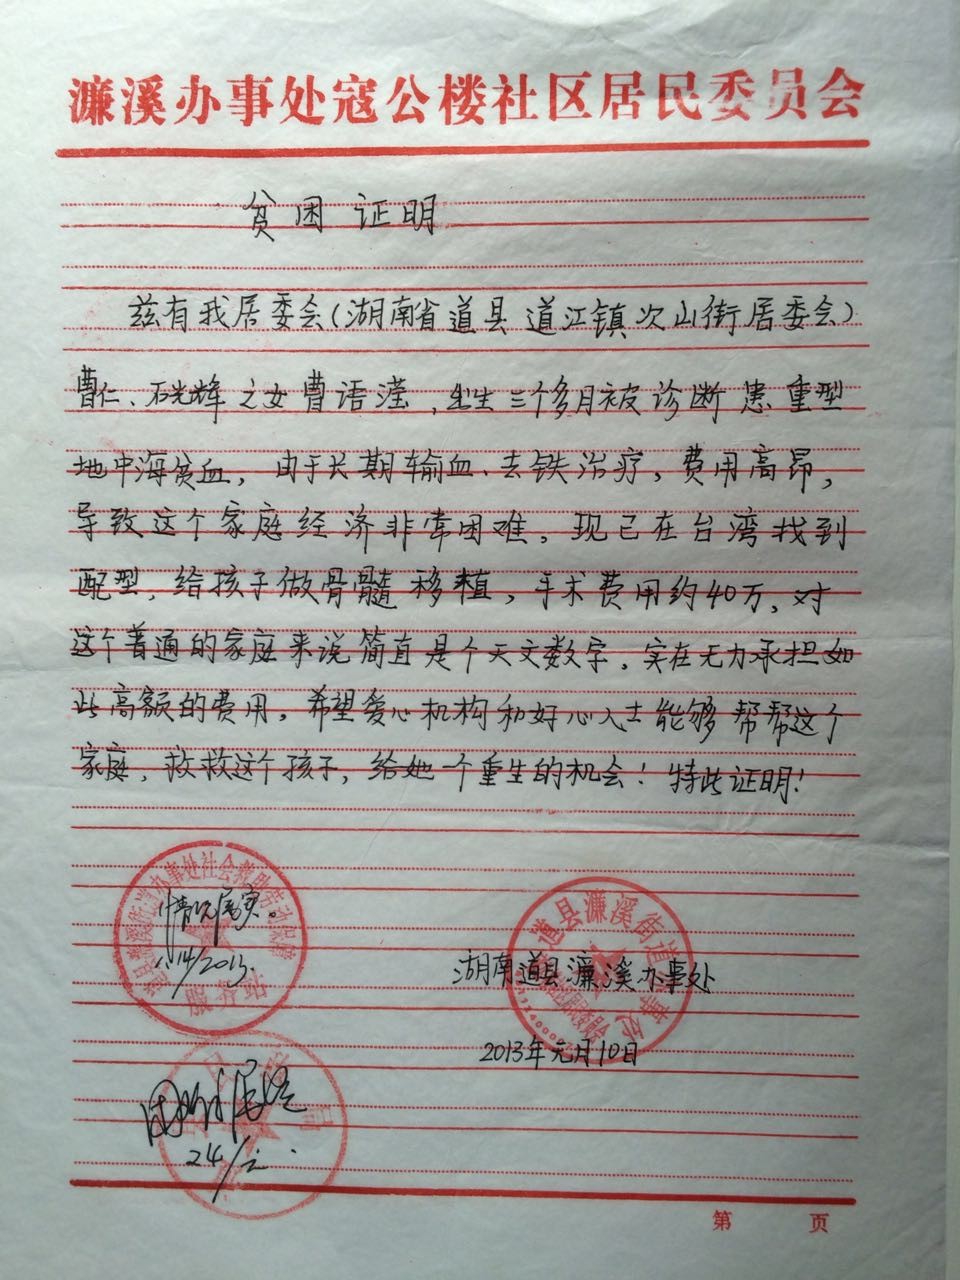 濂溪办事处寇公楼社区居民委员会
贫困证明
兹有我居委会(湖南省道县道江镇次山街居委会)
曹仁、石光辉之女曹语滢,出生三个多月被诊断患重型
地中海贫血,由于长期输血、去铁治疗,费用高昂,
导致这个家庭经济非常困难,现已在台湾找到
配型,给孩子做骨髓移植,手术费用约40万,对
这个普通的家庭来说简直是个天文数字,实在无力承担如
此高额的费用,希望爱心机构和好心人士能够帮帮这个
家庭,救救这个孩子,给她一个重生的机会!特此证明!
情况属实。
14/2013
服务站
道县濂溪街道办事处
湖南道县濂溪办事处
2013年元月10日
24/元.
第 页